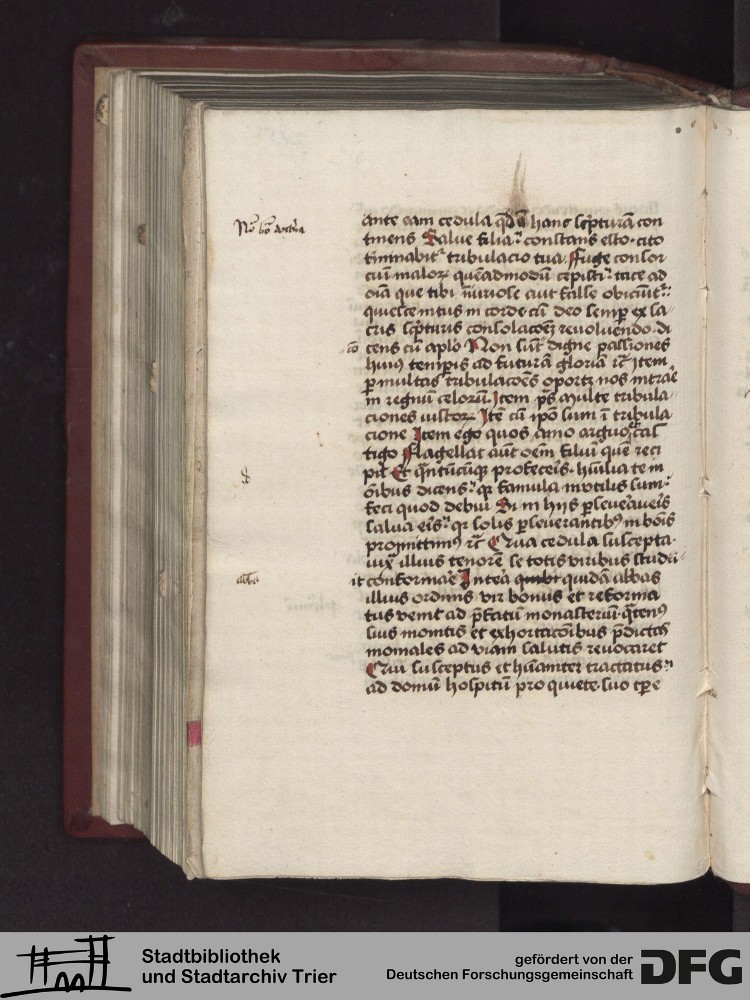 ante eam cedula hanc sc̄pturā con
tinens Salue filia: constans esto. cito
t̄minabit᷑ tribulacio tua. Fuge consor
ciū maloꝝ quēadmodū cepisti: tace ad
oīa que tibi iniuriose aut false obiciūt᷑:
quiescē intus in corde cū deo semꝑ ex sa
cris sc̄pturis consolacōeꝫ reuoluendo. di
cens cū aplō Non sūt digne passiones
huiꝰ temꝑis ad futurā gloriā rc̄ Item
ꝑ multas tribulacōes oportꝫ nos intrare
in regnū celorū. Item ps̄ Multe tribula
ciones iustoꝝ Itē cū ip̄o sum ī tribula
cione Item ego quos amo arguo et cas
tigo Flagellat aūt oēm filiū quē reci
pit Et q̄ntūcūqꝫ profeceris. hūilia te in
oībus dicens: qꝛ famula inutilis sum.
feci quod debui Si in hijs ꝑseueraueris
salua eis: qꝛ solis ꝑseuerantibꝰ in bonis
promittimꝰ rc̄ Qua cedula suscepta.
iux̄ illius tenorē se totis viribus studu
it conformare Interea quidā abbas
illius ordinis vir bonus et reforma
tus venit ad p̄fatū monasteriū. q̄tenꝰ
suis monitis et exhortacōibus p̄dictas
moniales ad viam salutis reuocaret
Qui susceptus et hūaniter tractatus:
ad domū hospitū pro quiete. suo tꝑe
Stadtbibliothek
und Stadtarchiv Trier
gefördert von der
Deutschen Forschungsgemeinschaft
DFG